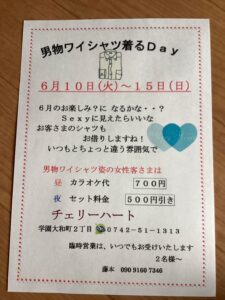 男物ワイシャツ着るDay
6月10日(火)〜15日(日)
6月のお楽しみ?に なるかな・・?
Sexyに見えたらいいな
お客さまのシャツも
お借りしますね!
いつもとちょっと違う雰囲気で
男物ワイシャツ姿の女性客さまは
昼 カラオケ代 700円
夜 セット料金 500円引き
チェリーハート
学園大和町2丁目 0742-51-1313
臨時営業は、いつでもお受けいたします
2名様〜
藤本 090 9160 7346